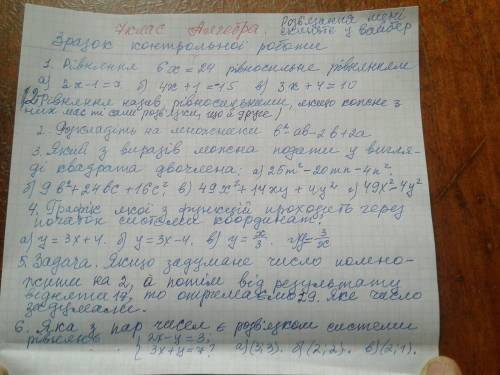 7 клас Алгебра
Розв'язання мені
скиньте у вайбер
Зразок контрольної роботи
1. Рівняння 6x = 24 рівносильне рівнянням
а) 2x-1=7 б) 4x+1=-15 в) 3x+4=10
(Рівняння назив. рівносильними, якщо кожне з
них має ті самі розв'язки, що й друге)
2. Розкладіть на множники b² ab-2b+2a
3. Який з виразів можна подати у вигля-
ді квадрата двочлена: а) 25m²-20mn-4n²
б) 9b²+24bc+16c² в) 49x²+14xy+4y² г) 49x²-4y²
4. Графік якої з функцій проходить через
початок системи координат:
а) y=3x+4. б) y=3x-4. в) y=x/3. г) y=3/x
5. Задача. Якщо задумане число помно-
жити на 2, а потім від результату
відняти 19, то отримаємо 29. Яке число
задумали.
6. Яка з пар чисел є розв'язком системи
рівнянь { 2x-y=3,
{ 3x+y=7? а) (3;3). б) (2;2). в) (2;1).